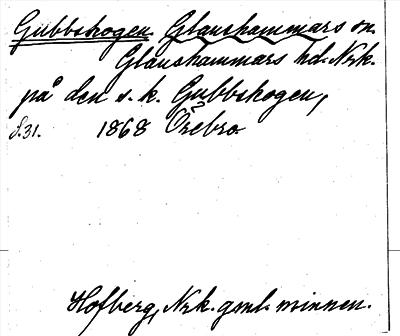 Gubbskogen Glanshammars sn.
Glanshammars hd. Nrk.
på den s. k. Gubbskogen,
S.31. 1868 Örebro
Hofberg, Nrk. gml. minnen.